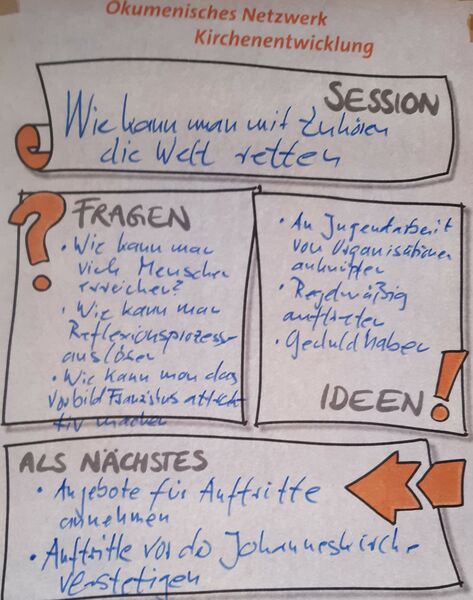 Ökumenisches Netzwerk
Kirchenentwicklung
SESSION
Wie kann man mit Zuhören
die Welt retten
FRAGEN
• Wie kann man
viele Menschen
erreichen?
• Wie kann man
Reflexionsprozesse
auslösen
• Wie kann man das
Vorbild Franziskus attrak-
tiv machen
• An Jugendarbeit
von Organisationen
anknüpfen
• Regelmäßig
auftreten
• Geduld haben
IDEEN
ALS NÄCHSTES
• Angebote für Auftritte
annehmen
• Auftritte vor der Johanneskirche
verstetigen